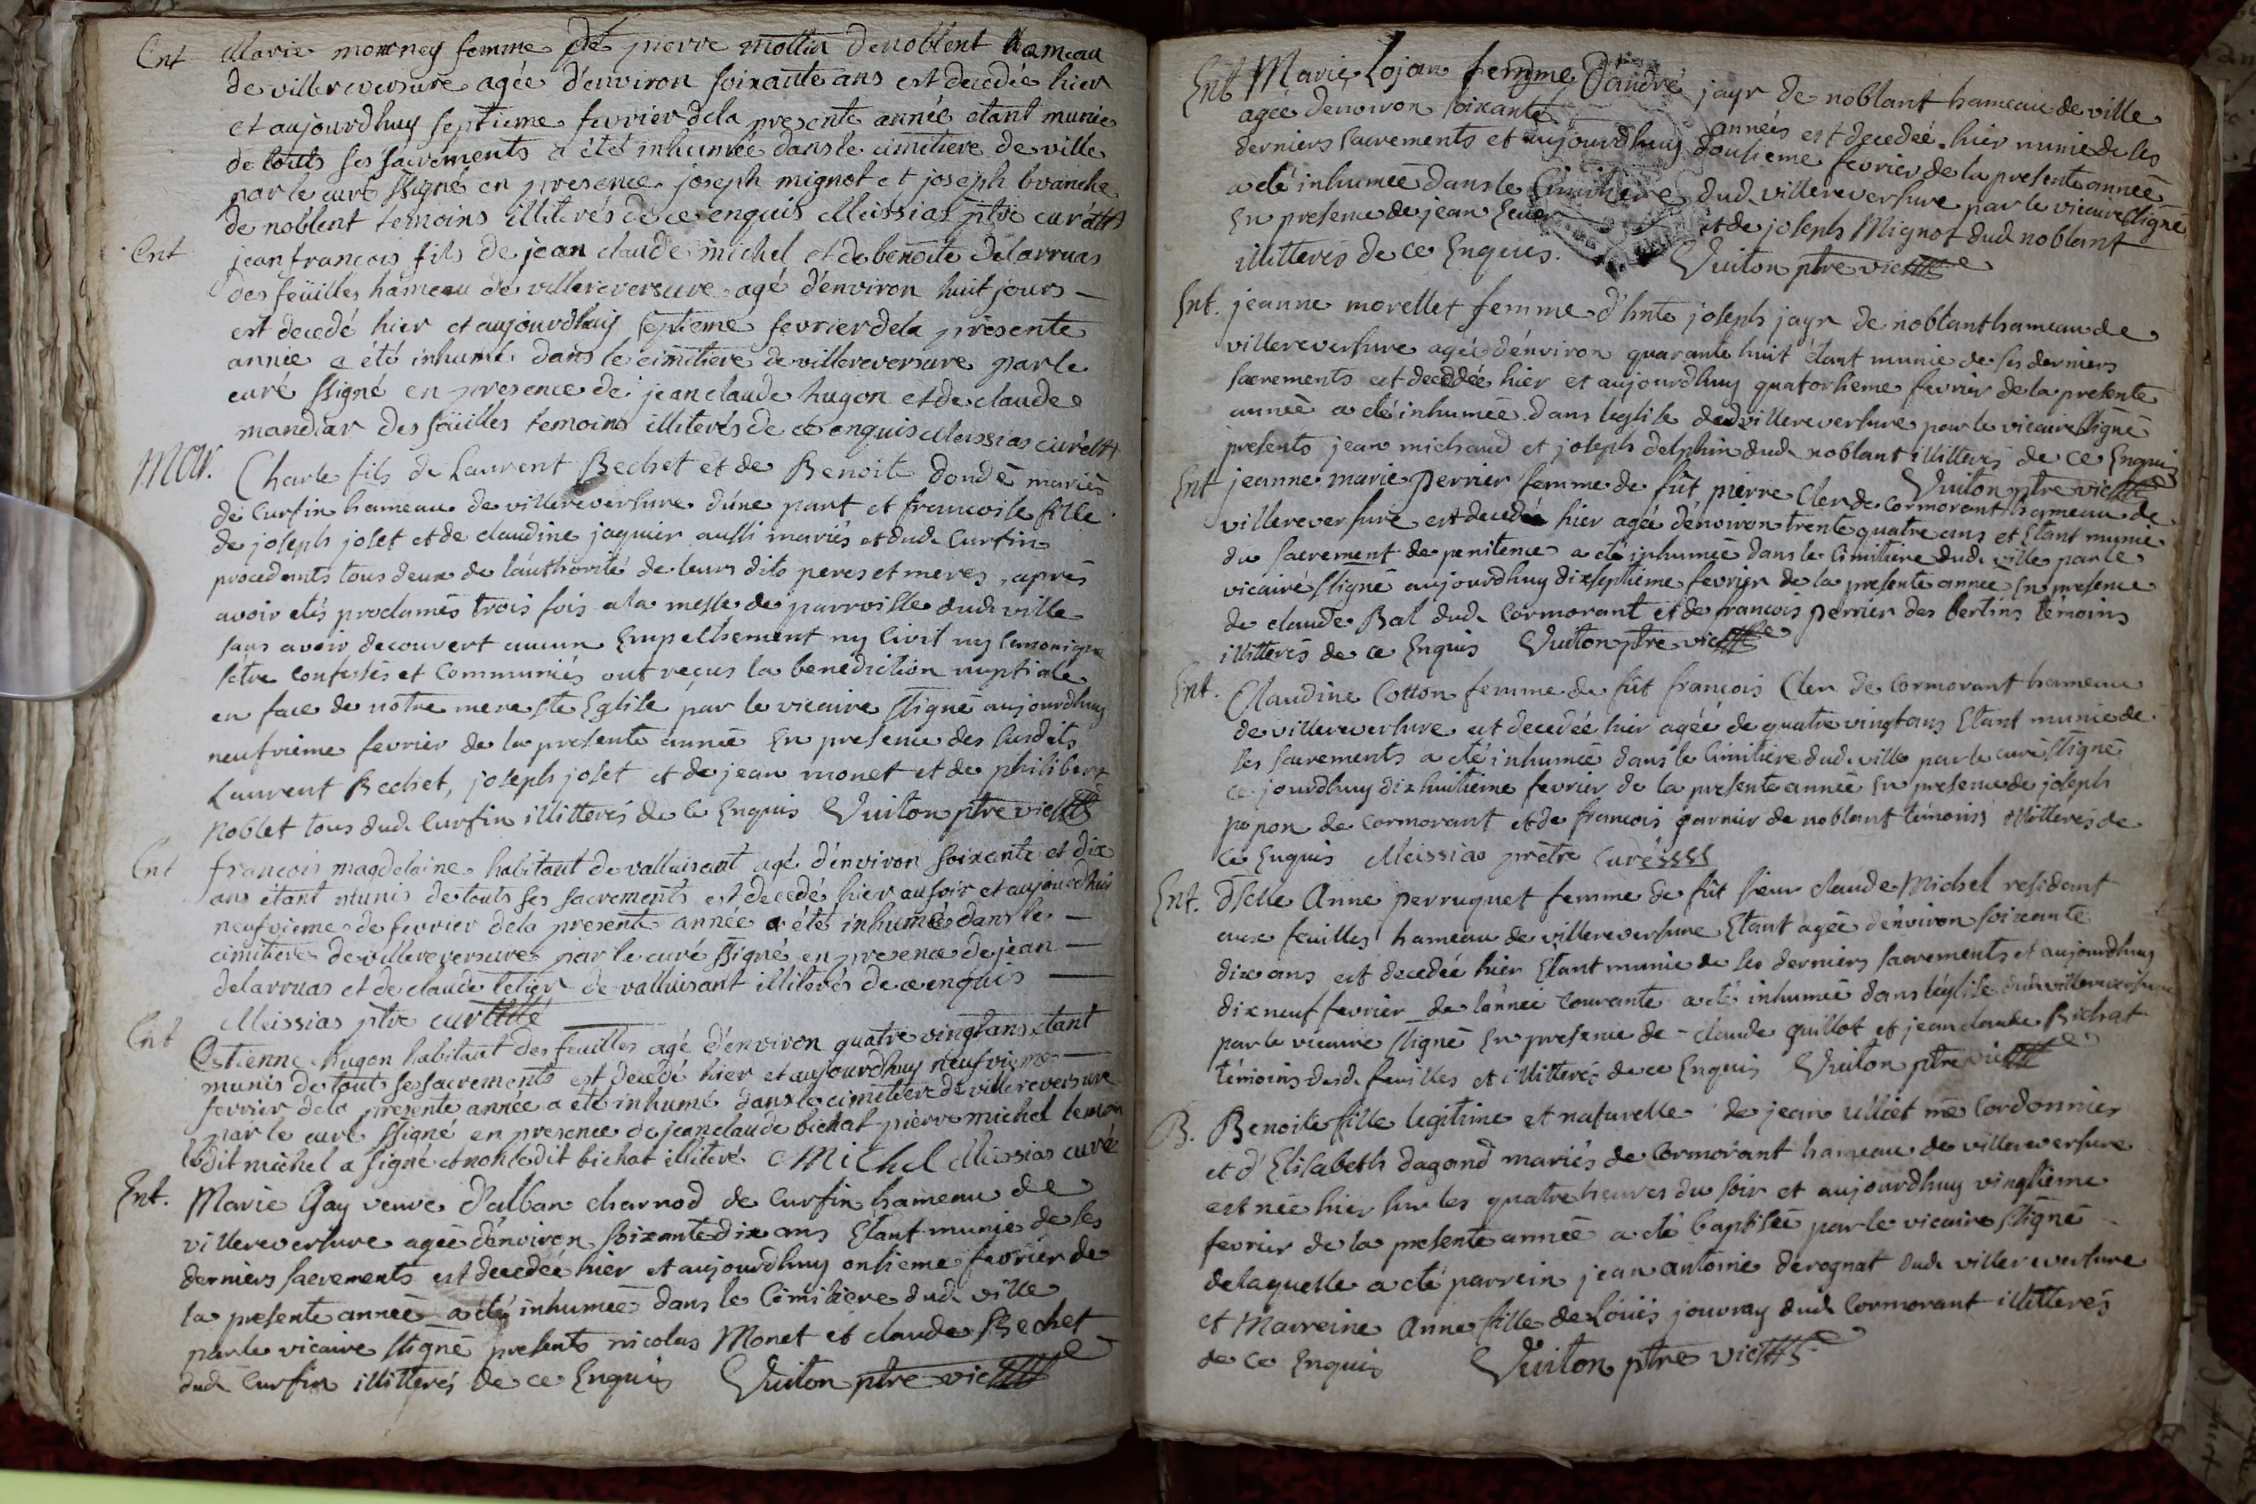 Ent Marie morney femme de pierre mollia de noblent hameau
de villereversure agée d'environ soixante ans est decedée hier
et aujourdhuy septieme fevrier de la presente année etant munie
de touts ses sacrements a été inhumée dans le cimitiere de ville
par le curé ssigné en presence joseph mignot et joseph branche
de noblent temoins illiterés de ce enquis Meissias ptre curé
Ent jean francois fils de jean claude michel et de benoite delarruas
des feüilles hameau de villereversure agé d'environ huit jours —
est decedé hier et aujourdhuy septieme fevrier de la presente
année a été inhumé dans le cimitiere de villereversure par le
curé ssigné en presence de jean claude hugon et de claude
mandiar des feüilles temoins illiterés de ce enquis Meissias curé
Mar. Charle fils de Laurent Bechet et de Benoite dondé mariés
de Curfin hameau de villereversure d'une part et francoise fille
de joseph joset et de claudine jaquier aussi mariés et dud. Curfin
procedants tous deux de l'authorité de leurs dits peres et meres, aprés
avoir etés proclamés trois fois a la messe de parroisse dud. ville
sans avoir decouvert aucun Empechement ny Civil ny Canonique
s'etre confessés et Communiés ont reçus la benediction nuptiale
en face de notre mere ste Eglise par le vicaire ssigné aujourdhuy
neufvieme fevrier de la presente année En presence des susdits
Laurent Bechet, joseph joset et de jean monet et de philibert
Noblet tous dud. Curfin illitterés de ce Enquis Vuiton ptre vic
Ent francois magdelaine habitant de valluisant agé d'environ soixante et dix
ans étant munis de touts ses sacrements est decedé hier au soir et aujourdhui
neufvieme de fevrier dela presente année a été inhumé dans le —
cimitiere de villereversure par le curé ssigné en presence de jean —
delarruas et de claude letier de valluisant illiterés de ce enquis —
Meissias ptre curé
Ent Estienne hugon habitant des feuilles agé d'environ quatre vingt ans etant
munis de touts ses sacrements est decedé hier et aujourdhuy neufvieme —
fevrier dela presente année a été inhumé dans le cimetiere de villereversure
par le curé ssigné en presence de jean claude bichat pierre michel
ledit michel a signé et non ledit bichat illiteré Michel Meissias curé
Ent. Marie Gay veuve d'alban charnod de Curfin hameau de
villereversure agée d'environ soixante dix ans Etant munie de ses
derniers sacrements est decedée hier et aujourdhuy onsieme fevrier de
la presente année a été inhumée dans le Cimitiere dud. ville
par le vicaire ssigné presents nicolas Monet et claude Bechet
dud. Curfin illitterés de ce Enquis Vuiton ptre vic
Ent Marie Lojon femme d'andré jayr de noblant hameau de ville
agée denviron soixante années est decedée hier munie de ses
derniers sacrements et aujourdhuy dousieme fevrier de la presente année
a été inhumée dans le Cimitiere dud. villereversure par le vicaire ssigné
En presence de jean et de joseph Mignot dud. noblant
illitterés de ce Enquis. Vuiton ptre vic
Ent. jeanne morellet femme d'hnte joseph jayr de noblant hameau de
villereversure agée d'environ quarante huit étant munie de ses derniers
sacrements est decedée hier et aujourdhuy quatorsieme fevrier de la presente
année a été inhumée dans l'eglise dud. villereversure par le vicaire ssigné
presents jean michaud et joseph delphin dud. noblant illitterés de ce Enquis
Vuiton ptre vic
Ent jeanne marie perrier femme de fût pierre Cler de Cormorant hameau de
villereversure est decedée hier agée d'environ trente quatre ans et Etant munie
du sacrement de penitence a été inhumée dans le Cimitiere dud. ville par le
vicaire ssigné aujourdhuy dixseptieme fevrier de la presente année En presence
de claude Bal dud. Cormorant et de francois perrier des bertins temoins
illitterés de ce Enquis Vuiton ptre vic
Ent. Claudine Cotton femme de fût francois Cler de Cormorant hameau
de villereversure est decedée hier agée de quatre vingt ans Etant munie de
ses sacrements a été inhumée dans le Cimitiere dud. ville par le curé ssigné
ce jourdhuy dixhuitieme fevrier de la presente année En presence de joseph
popon de Cormorant et de francois garnier de noblant témoins illitterés de
ce Enquis Meissias prêtre Curé
Ent. Dselle Anne perruquet femme de fût sieur claude Michel residant
aux feuilles hameau de villereversure Etant agée d'environ soixante
dix ans est decedée hier Etant munie de ses derniers sacrements et aujourdhuy
dix neuf fevrier de l'année Courante a été inhumée dans l'eglise dud. villereversure
par le vicaire ssigné En presence de claude guillot et jean claude Bichat
témoins desd. feuilles et illitterés de ce Enquis Vuiton ptre vic
B. Benoite fille legitime et naturelle de jean Uliet me Cordonnier
et d'Elisabeth dagand mariés de Cormorant hameau de villereversure
est née hier sur les quatre heures du soir et aujourdhuy vingtieme
fevrier de la presente année a été baptisée par le vicaire ssigné
de laquelle a été parrein jean antoine derognat dud. villereversure
et Marreine Anne fille de Loüis jouvray dud. Cormorant illitterés
de ce Enquis Vuiton ptre vic